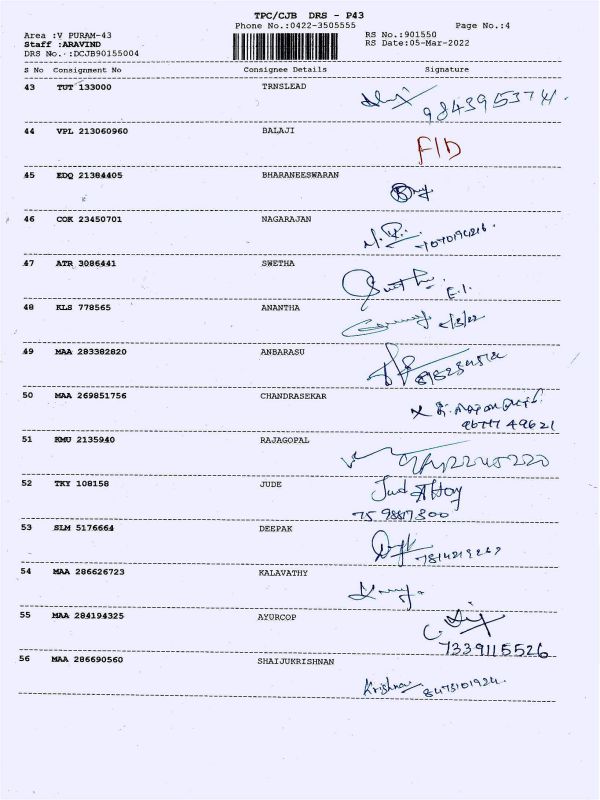 TPC/CJB DRS - P43
Phone No.:0422-3505555 Page No.:4
Area :V PURAM-43 RS No.:901550
Staff :ARAVIND RS Date:05-Mar-2022
DRS No. :DCJB90155004
S No Consignment No Consignee Details Signature
43 TUT 133000 TRNSLEAD
9843953741.
44 VPL 213060960 BALAJI
F/D
45 EDQ 21384405 BHARANEESWARAN
46 COK 23450701 NAGARAJAN
47 ATR 3086441 SWETHA
E.I.
48 KLS 778565 ANANTHA
49 MAA 283382820 ANBARASU
50 MAA 269851756 CHANDRASEKAR
51 KMU 2135940 RAJAGOPAL
52 TKY 108158 JUDE
53 SLM 5176664 DEEPAK
54 MAA 286626723 KALAVATHY
55 MAA 284194325 AYURCOP
7339115526
56 MAA 286690560 SHAIJUKRISHNAN
Krishnan 8473101924.